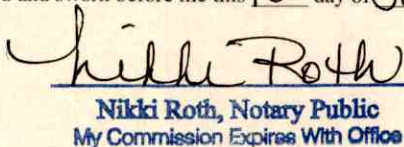 and sworn before me this day of
Nikki Roth
Nikki Roth, Notary Public
My Commission Expires With Office